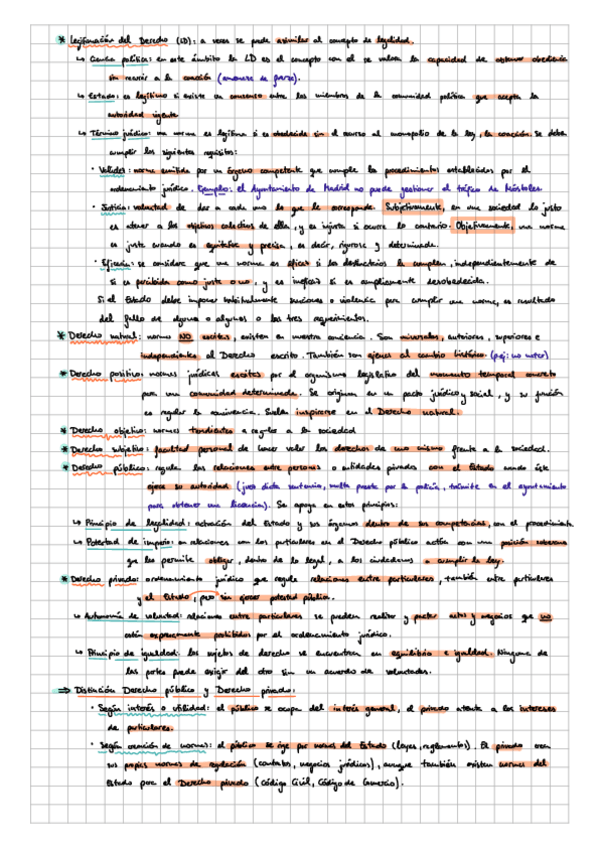 * Legitimación del Derecho (LD): a veces se puede asimilar al concepto de legalidad.
↳ Ciencia política: en este ámbito la LD es el concepto con el se valora la capacidad de obtener obediencia
sin recurrir a la coacción (amenaza de fuerza).
↳ Estado: es legítimo si existe un consenso entre los miembros de la comunidad política que acepta la
autoridad vigente
↳ Término jurídico: una norma es legítima si es obedecida sin el recurso al monopolio de la ley, la coacción. Se debe
cumplir los siguientes requisitos:
· Validez: norma emitida por un órgano competente que cumple los procedimientos establecidos por el
ordenamiento jurídico. Ejemplo: el Ayuntamiento de Madrid no puede gestionar el tráfico de Móstoles
· Justicia: voluntad de dar a cada uno lo que le corresponde. Subjetivamente, en una sociedad lo justo
es atener a los objetivos colectivos de ella, y es injusta si ocurre lo contrario. Objetivamente, una norma
es justa cuando es equitativa y precisa, es decir, rigurosa y determinada.
· Eficacia: se considera que una norma es eficaz si los destinatarios la cumplen, independientemente de
si es percibida como justa o no, y es ineficaz si es ampliamente desobedecida.
Si el Estado debe imponer habitualmente sanciones o violencia para cumplir una norma, es resultado
del fallo de alguno o algunos o los tres requerimientos.
* Derecho natural: normas NO escritas, existen en nuestra conciencia. Son universales, anteriores, superiores e
independientes al Derecho escrito. También son ajenas al cambio histórico. (p.ej: no matar)
* Derecho positivo: normas jurídicas escritas por el organismo legislativo del momento temporal concreto
para una comunidad determinada. Se originan en un pacto jurídico y social, y su función
es regular la convivencia. Suelen inspirarse en el Derecho natural.
* Derecho objetivo: normas tendientes a reglar a la sociedad
* Derecho subjetivo: facultad personal de hacer valer los derechos de uno mismo frente a la sociedad.
* Derecho público: regula las relaciones entre personas o entidades privadas con el Estado cuando éste
ejerce su autoridad (juez dicta sentencia, multa puesta por la policía, trámite en el ayuntamiento
para obtener una licencia). Se apoya en estos principios:
↳ Principio de legalidad: actuación del Estado y sus órganos dentro de sus competencias, con el procedimiento
↳ Potestad de imperio: en relaciones con los particulares en el Derecho público actúa con una posición soberana
que les permite obligar, dentro de lo legal, a los ciudadanos a cumplir la ley.
* Derecho privado: ordenamiento jurídico que regula relaciones entre particulares, también entre particulares
y el Estado, pero sin ejercer potestad pública.
↳ Autonomía de voluntad: relaciones entre particulares se pueden realizar y pactar actos y negocios que no
están expresamente prohibidos por el ordenamiento jurídico.
↳ Principio de igualdad: los sujetos de derecho se encuentran en equilibrio e igualdad. Ninguna de
las partes puede exigir del otro sin un acuerdo de voluntades.
⇒ Distinción Derecho público y Derecho privado:
· Según interés o utilidad: el público se ocupa del interés general, el privado atiende a los intereses
de particulares.
· Según creación de normas: el público se rige por normas del Estado (leyes, reglamentos). El privado crea
sus propias normas de regulación (contratos, negocios jurídicos), aunque también existen normas del
Estado para el Derecho privado (Código Civil, Código de Comercio).